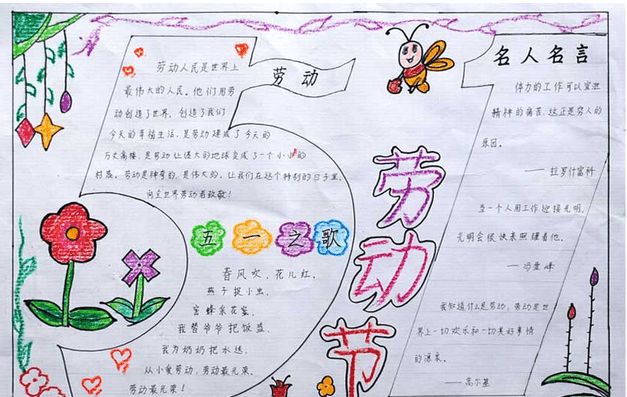 劳动
劳动人民是世界上
最伟大的人民。他们用劳
动创造了世界,创造了我们
今天的幸福生活,是劳动建成了今天的
万丈高楼,是劳动让偌大的地球变成了一个小小的
村落。劳动是神奇的,是伟大的。让我们在这个特别的日子里,
向全世界劳动者致敬!
五一之歌
春风吹,花儿红,
燕子捉小虫,
蜜蜂采花蜜,
我替爷爷把饭盛
我为奶奶把水送,
从小爱劳动,劳动最光荣,
劳动最光荣!
劳动节
名人名言
体力的工作可以宣泄
精神的痛苦,这正是穷人的
原因。
——拉罗什富科
当一个人用工作迎接光明,
光明会很快来照耀着他。
——冯学峰
我知道什么是劳动,劳动是世
界上一切欢乐和一切美好事情
的源泉。
——高尔基